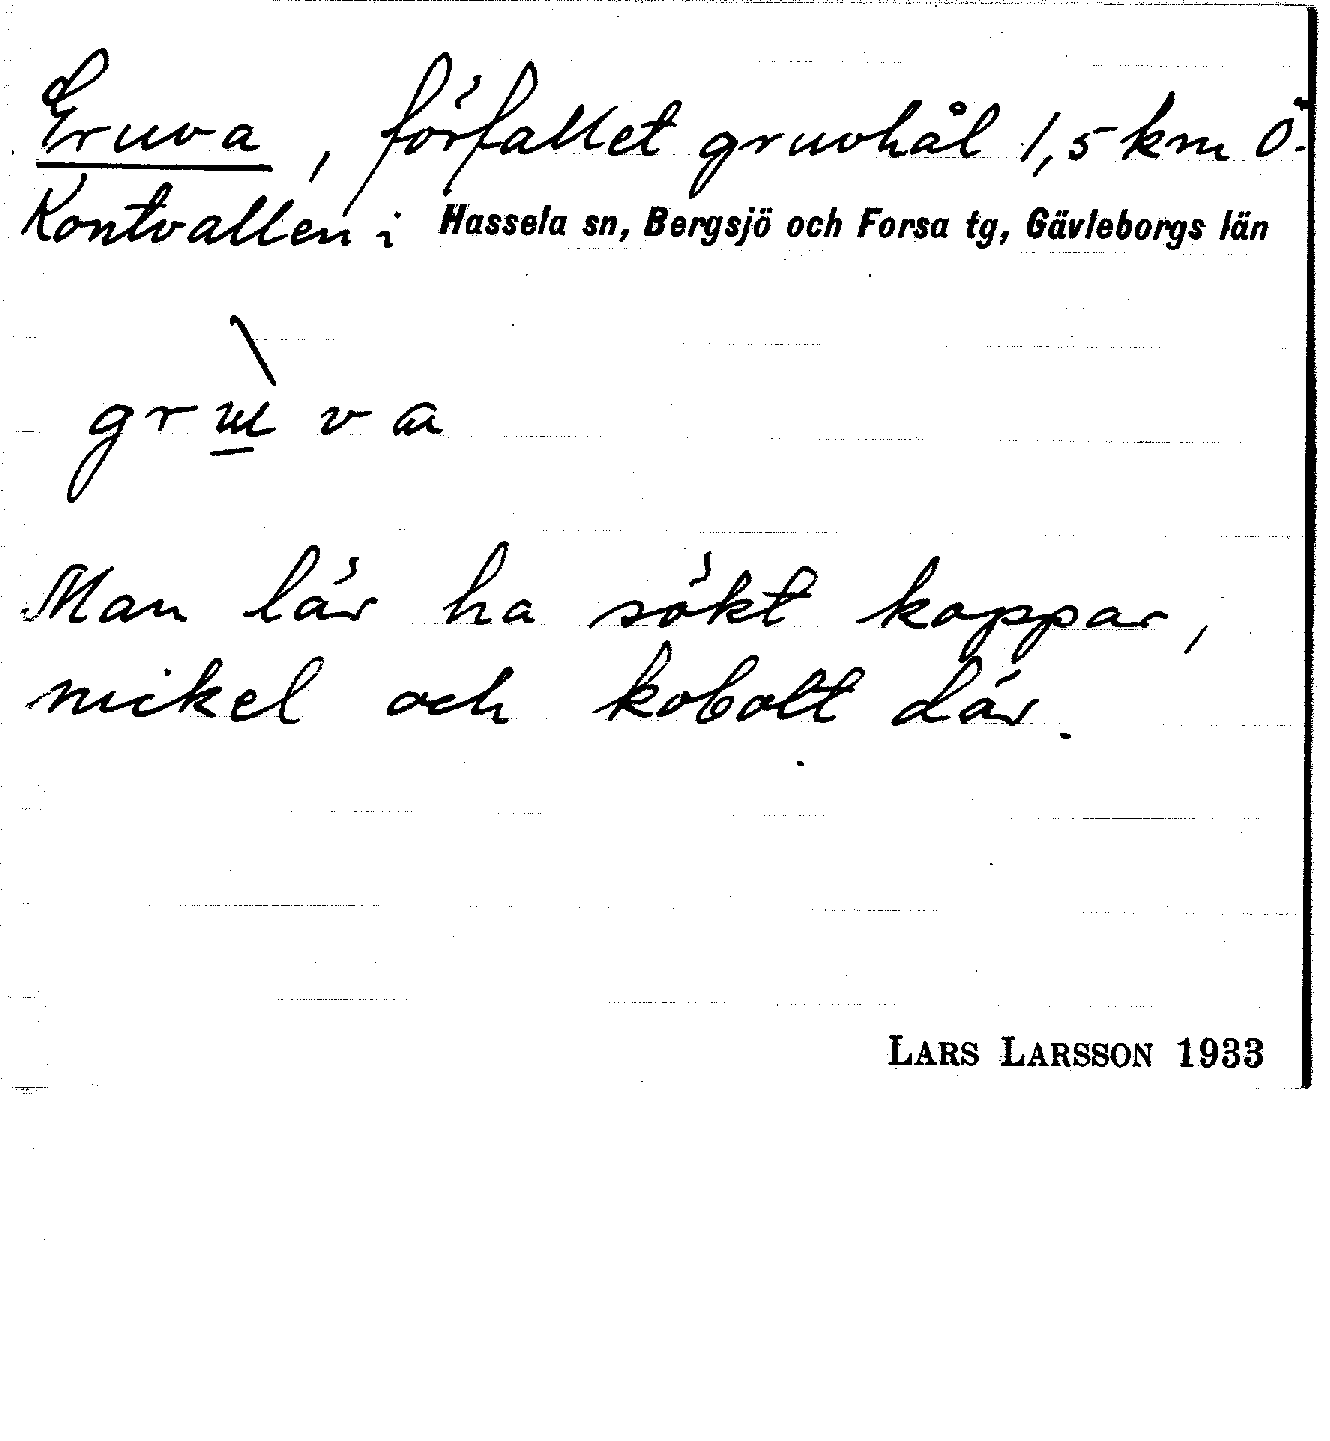 Gruva, förfallet gruvhål 1,5 km Ö.
Kontvallen i Hassela sn, Bergsjö och Forsa tg, Gävleborgs län
grùva
Man lär ha sökt koppar,
nickel och kobolt där.
LARS LARSSON 1933